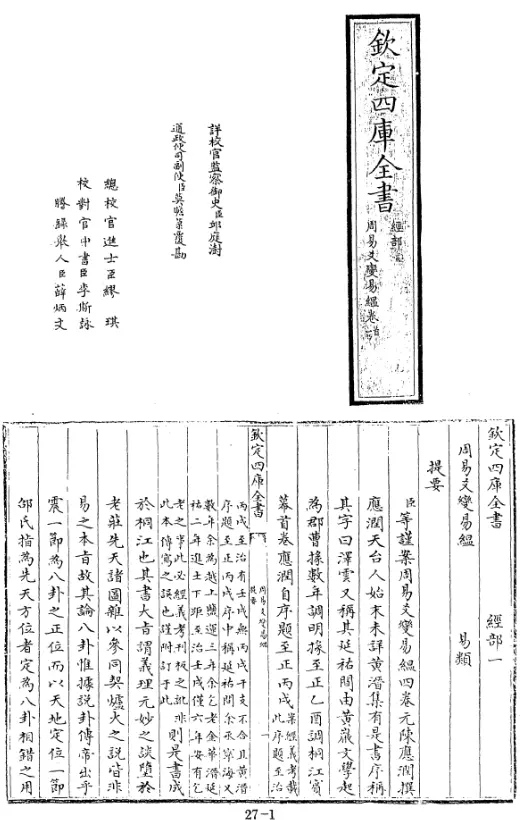 欽定四庫全書
經部
周易爻變易縕卷首
詳校官監察御史臣邱庭漋
通政使司副使臣莫瞻菉覆勘
總校官進士臣繆琪
校對官中書臣李斯咏
謄錄舉人臣薛炳文
欽定四庫全書
經部一
周易爻變易縕
易類
提要
臣等謹案周易爻變易縕四卷元陳應潤撰
應潤天台人始末未詳黃溍集有是書序稱
其字曰澤雲又稱其延祐間由黃巖文學起
為郡曹掾數年調明掾至正乙酉調桐江賓
幕首卷應潤自序題至正丙戌案經義考載此序題至治
欽定四庫全書
周易爻變易縕
提要
一
丙戌至治有壬戌無丙戌干支不合且黃溍
序題至正丙戌序中稱延祐間余丞寧海又
數年余為越上鹽運三年余乞老金華溍延
祐二年進士下距至治壬戌僅六年安有乞
老之事此必經義考刊板之訛非
此本傳寫之誤也謹附訂于此
則是書成
於桐江也其書大旨謂義理元妙之談墮於
老莊先天諸圖雜以參同契爐火之說皆非
易之本旨故其論八卦惟據說卦傳帝出乎
震一節為八卦之正位而以天地定位一節
邵氏指為先天方位者定為八卦相錯之用
27-1